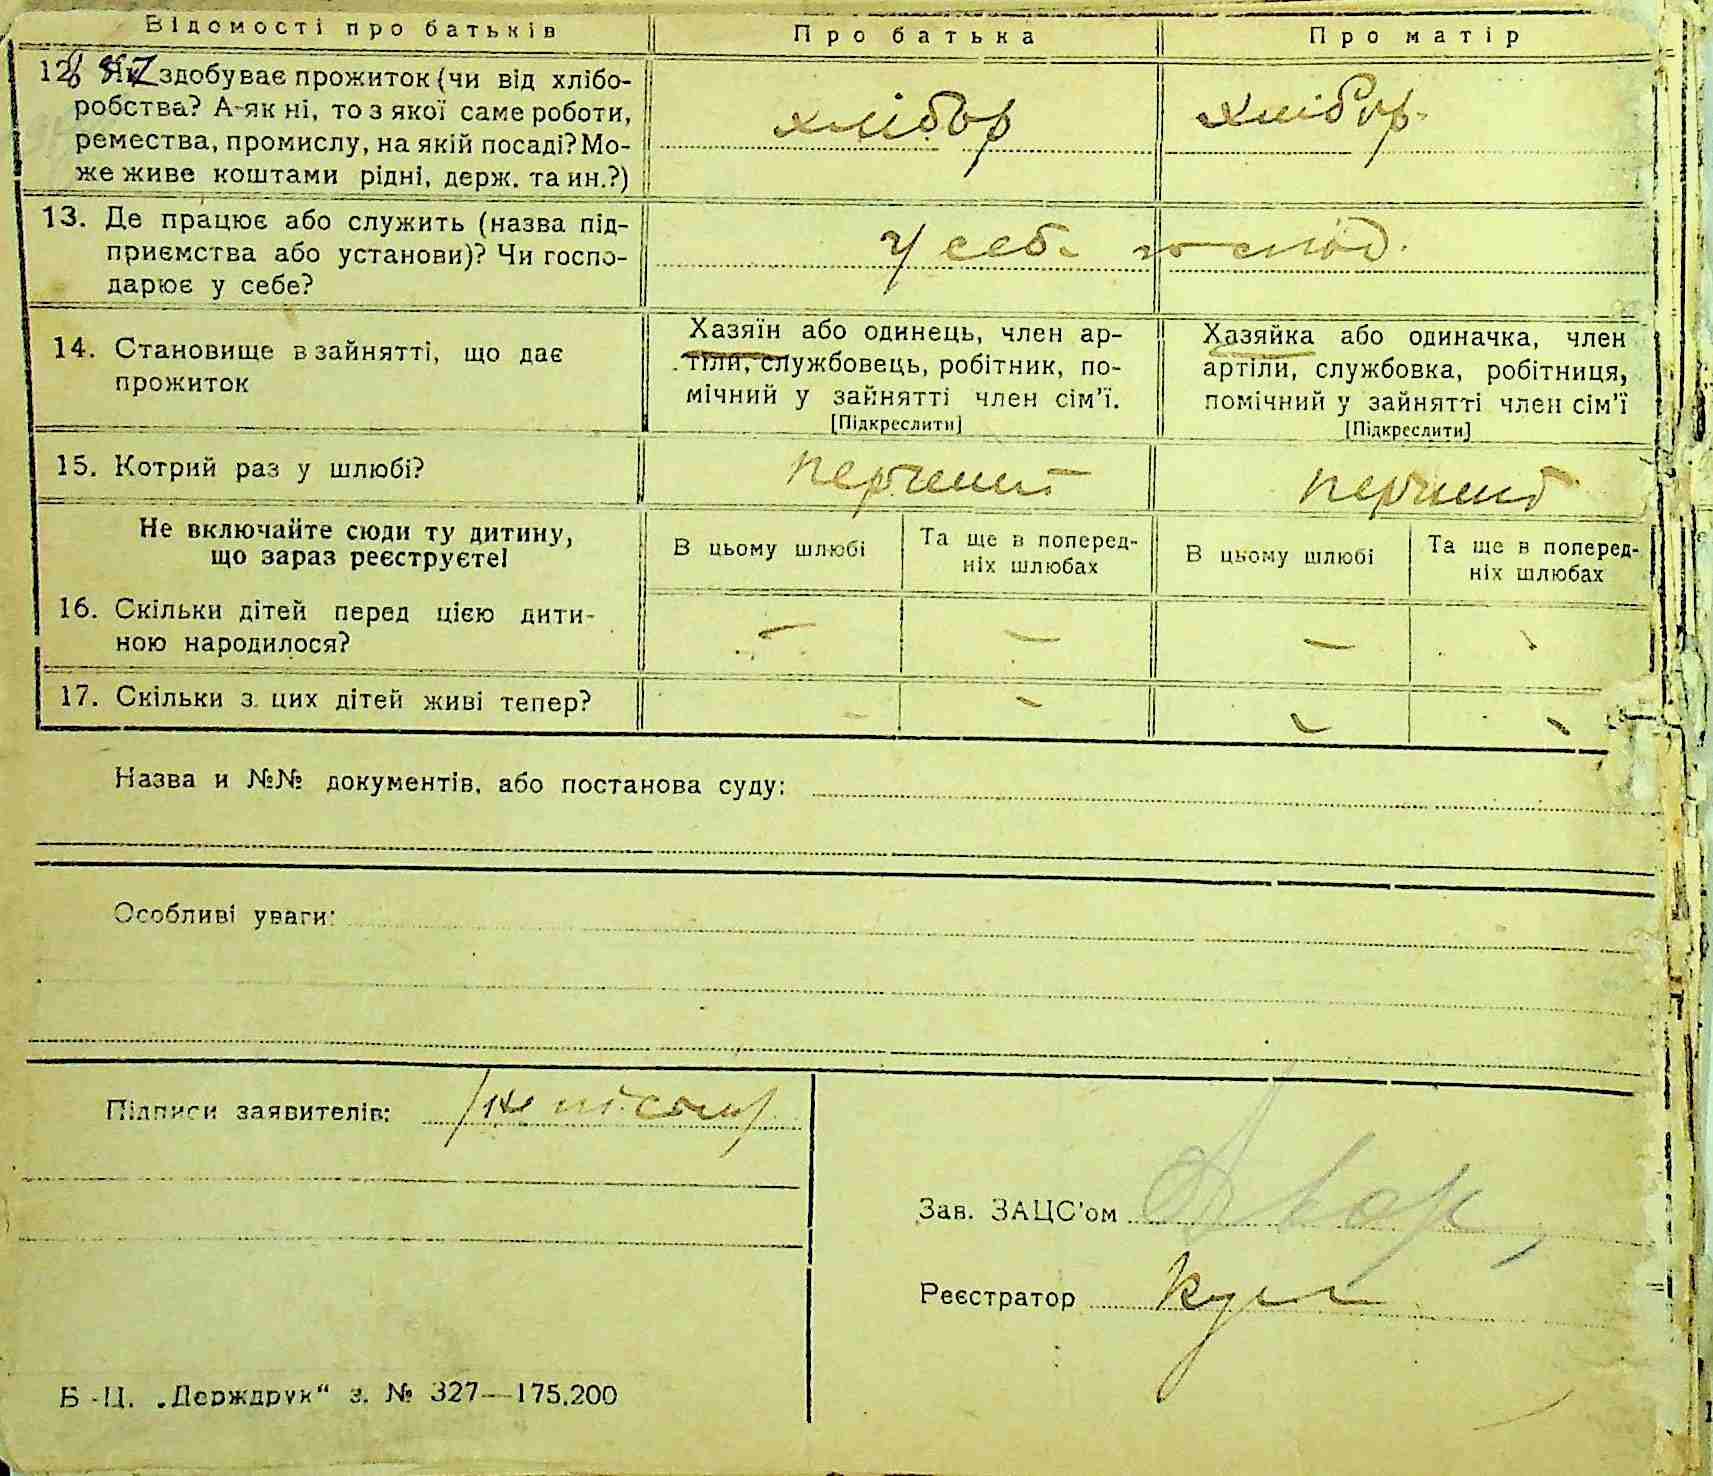 Відомості про батьків
Про батька
Про матір
12. Як здобуває прожиток (чи від хлібо-
робства? А як ні, то з якої саме роботи,
ремества, промислу, на якій посаді? Мо-
же живе коштами рідні, держ. та ин.?)
хлібор
хлібор.
13. Де працює або служить (назва під-
приємства або установи)? Чи госпо-
дарює у себе?
у себе господ.
14. Становище в зайнятті, що дає
прожиток
Хазяїн або одинець, член ар-
тіли, службовець, робітник, по-
мічний у зайнятті член сім’ї.
[Підкреслити]
Хазяйка або одиначка, член
артіли, службовка, робітниця,
помічний у зайнятті член сім’ї
[Підкреслити]
15. Котрий раз у шлюбі?
перший
перший
Не включайте сюди ту дитину,
що зараз реєструєте!
В цьому шлюбі
Та ще в поперед-
ніх шлюбах
В цьому шлюбі
Та ще в поперед-
ніх шлюбах
16. Скільки дітей перед цією дити-
ною народилося?
– – – –
17. Скільки з цих дітей живі тепер?
– – – –
Назва и №№ документів, або постанова суду:
Особливі уваги:
Підписи заявителів:
Зав. ЗАЦС’ом
Реєстратор
Б-Ц. „Держдрук“ з. № 327—175.200